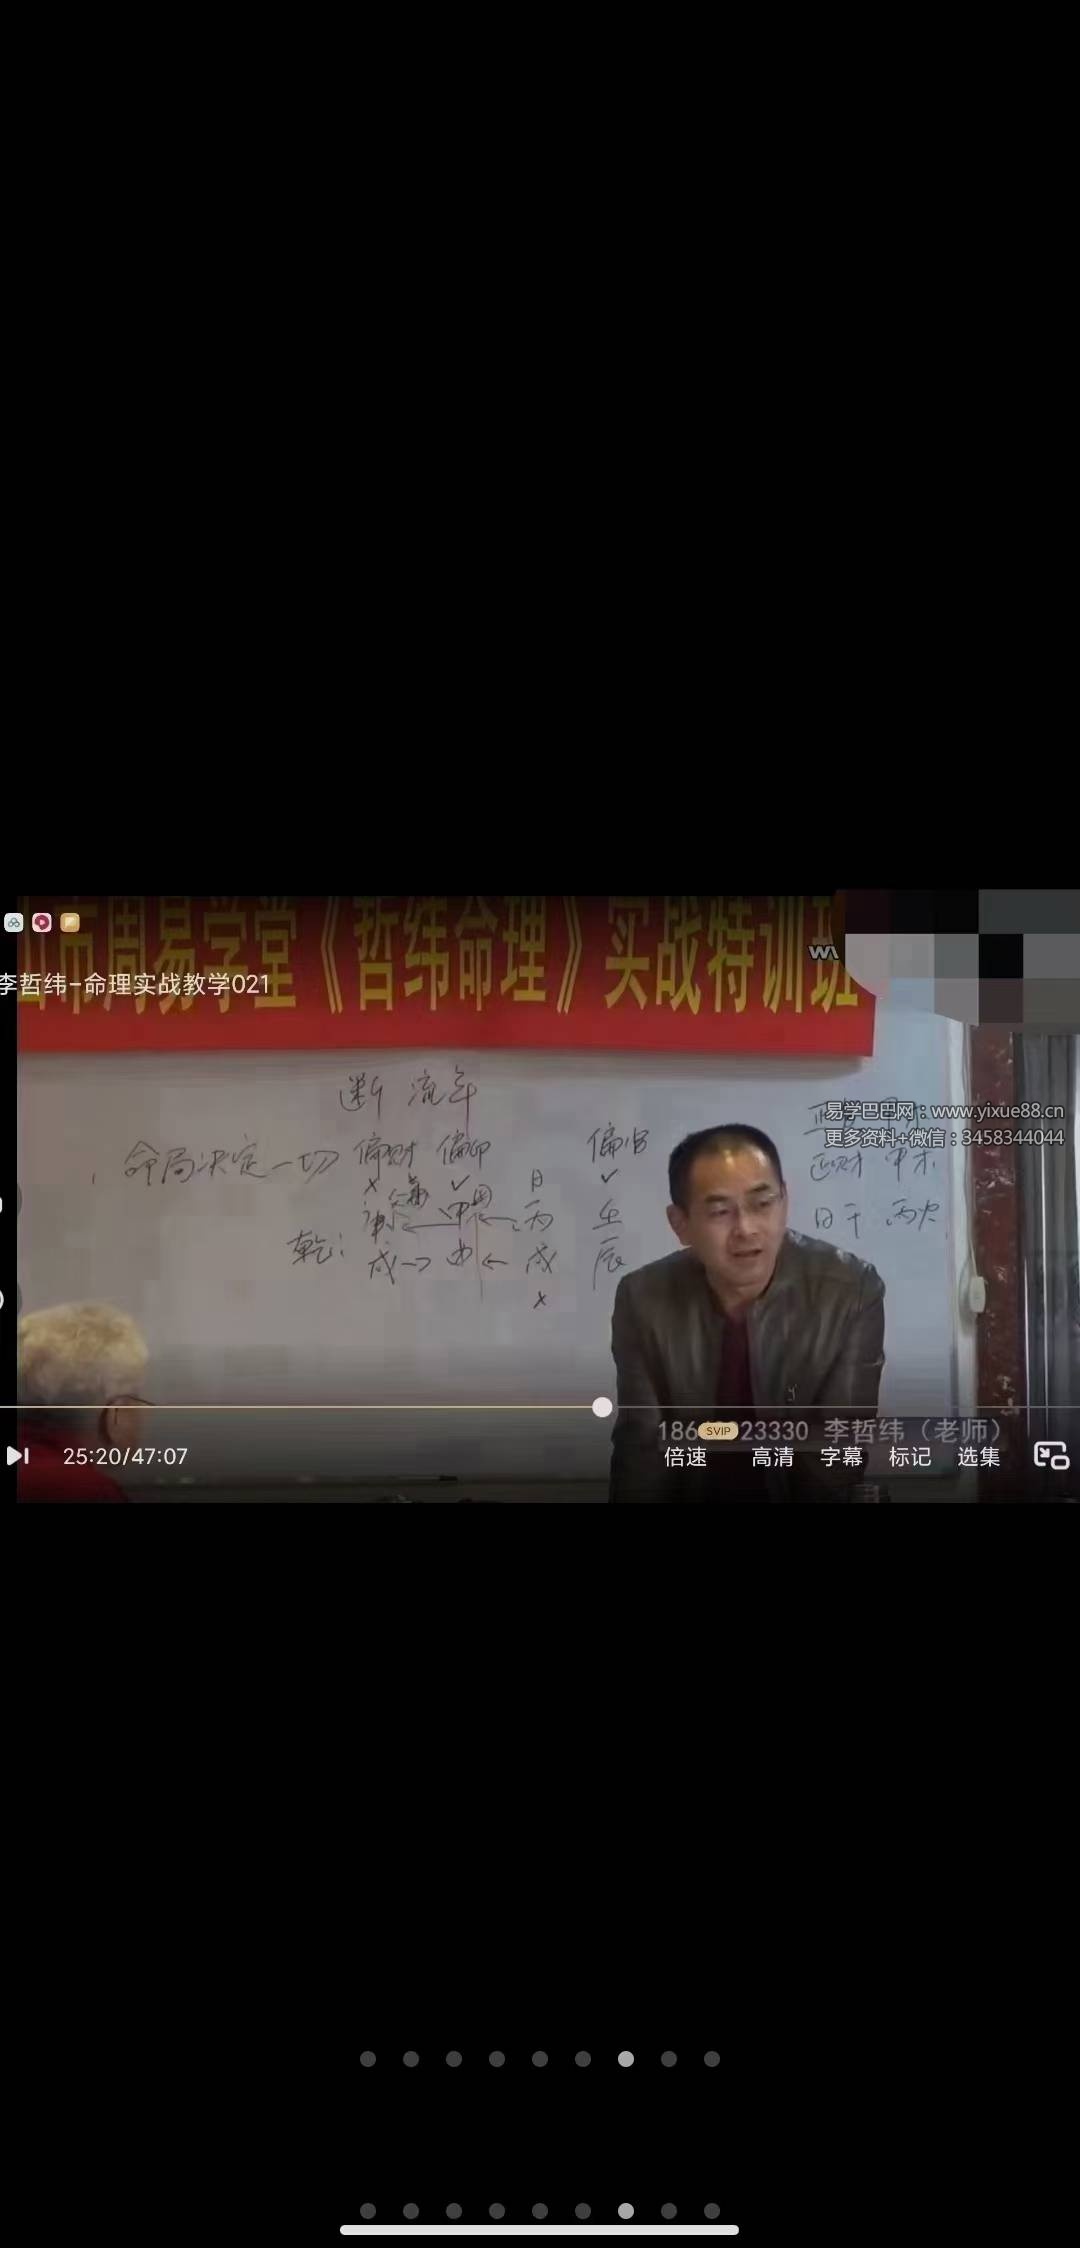 山市周易学堂《哲纬命理》实战特训班
李哲纬-命理实战教学021
断 流年
易学巴巴网：www.yixue88.cn
更多资料+微信：3458344044
1、命局决定一切
偏财 偏印 日 偏官
正财 甲木
日干 丙火
乾：
甲 丙 壬
戌 戌 辰
23330 李哲纬（老师）
SVIP
25:20/47:07
倍速 高清 字幕 标记 选集